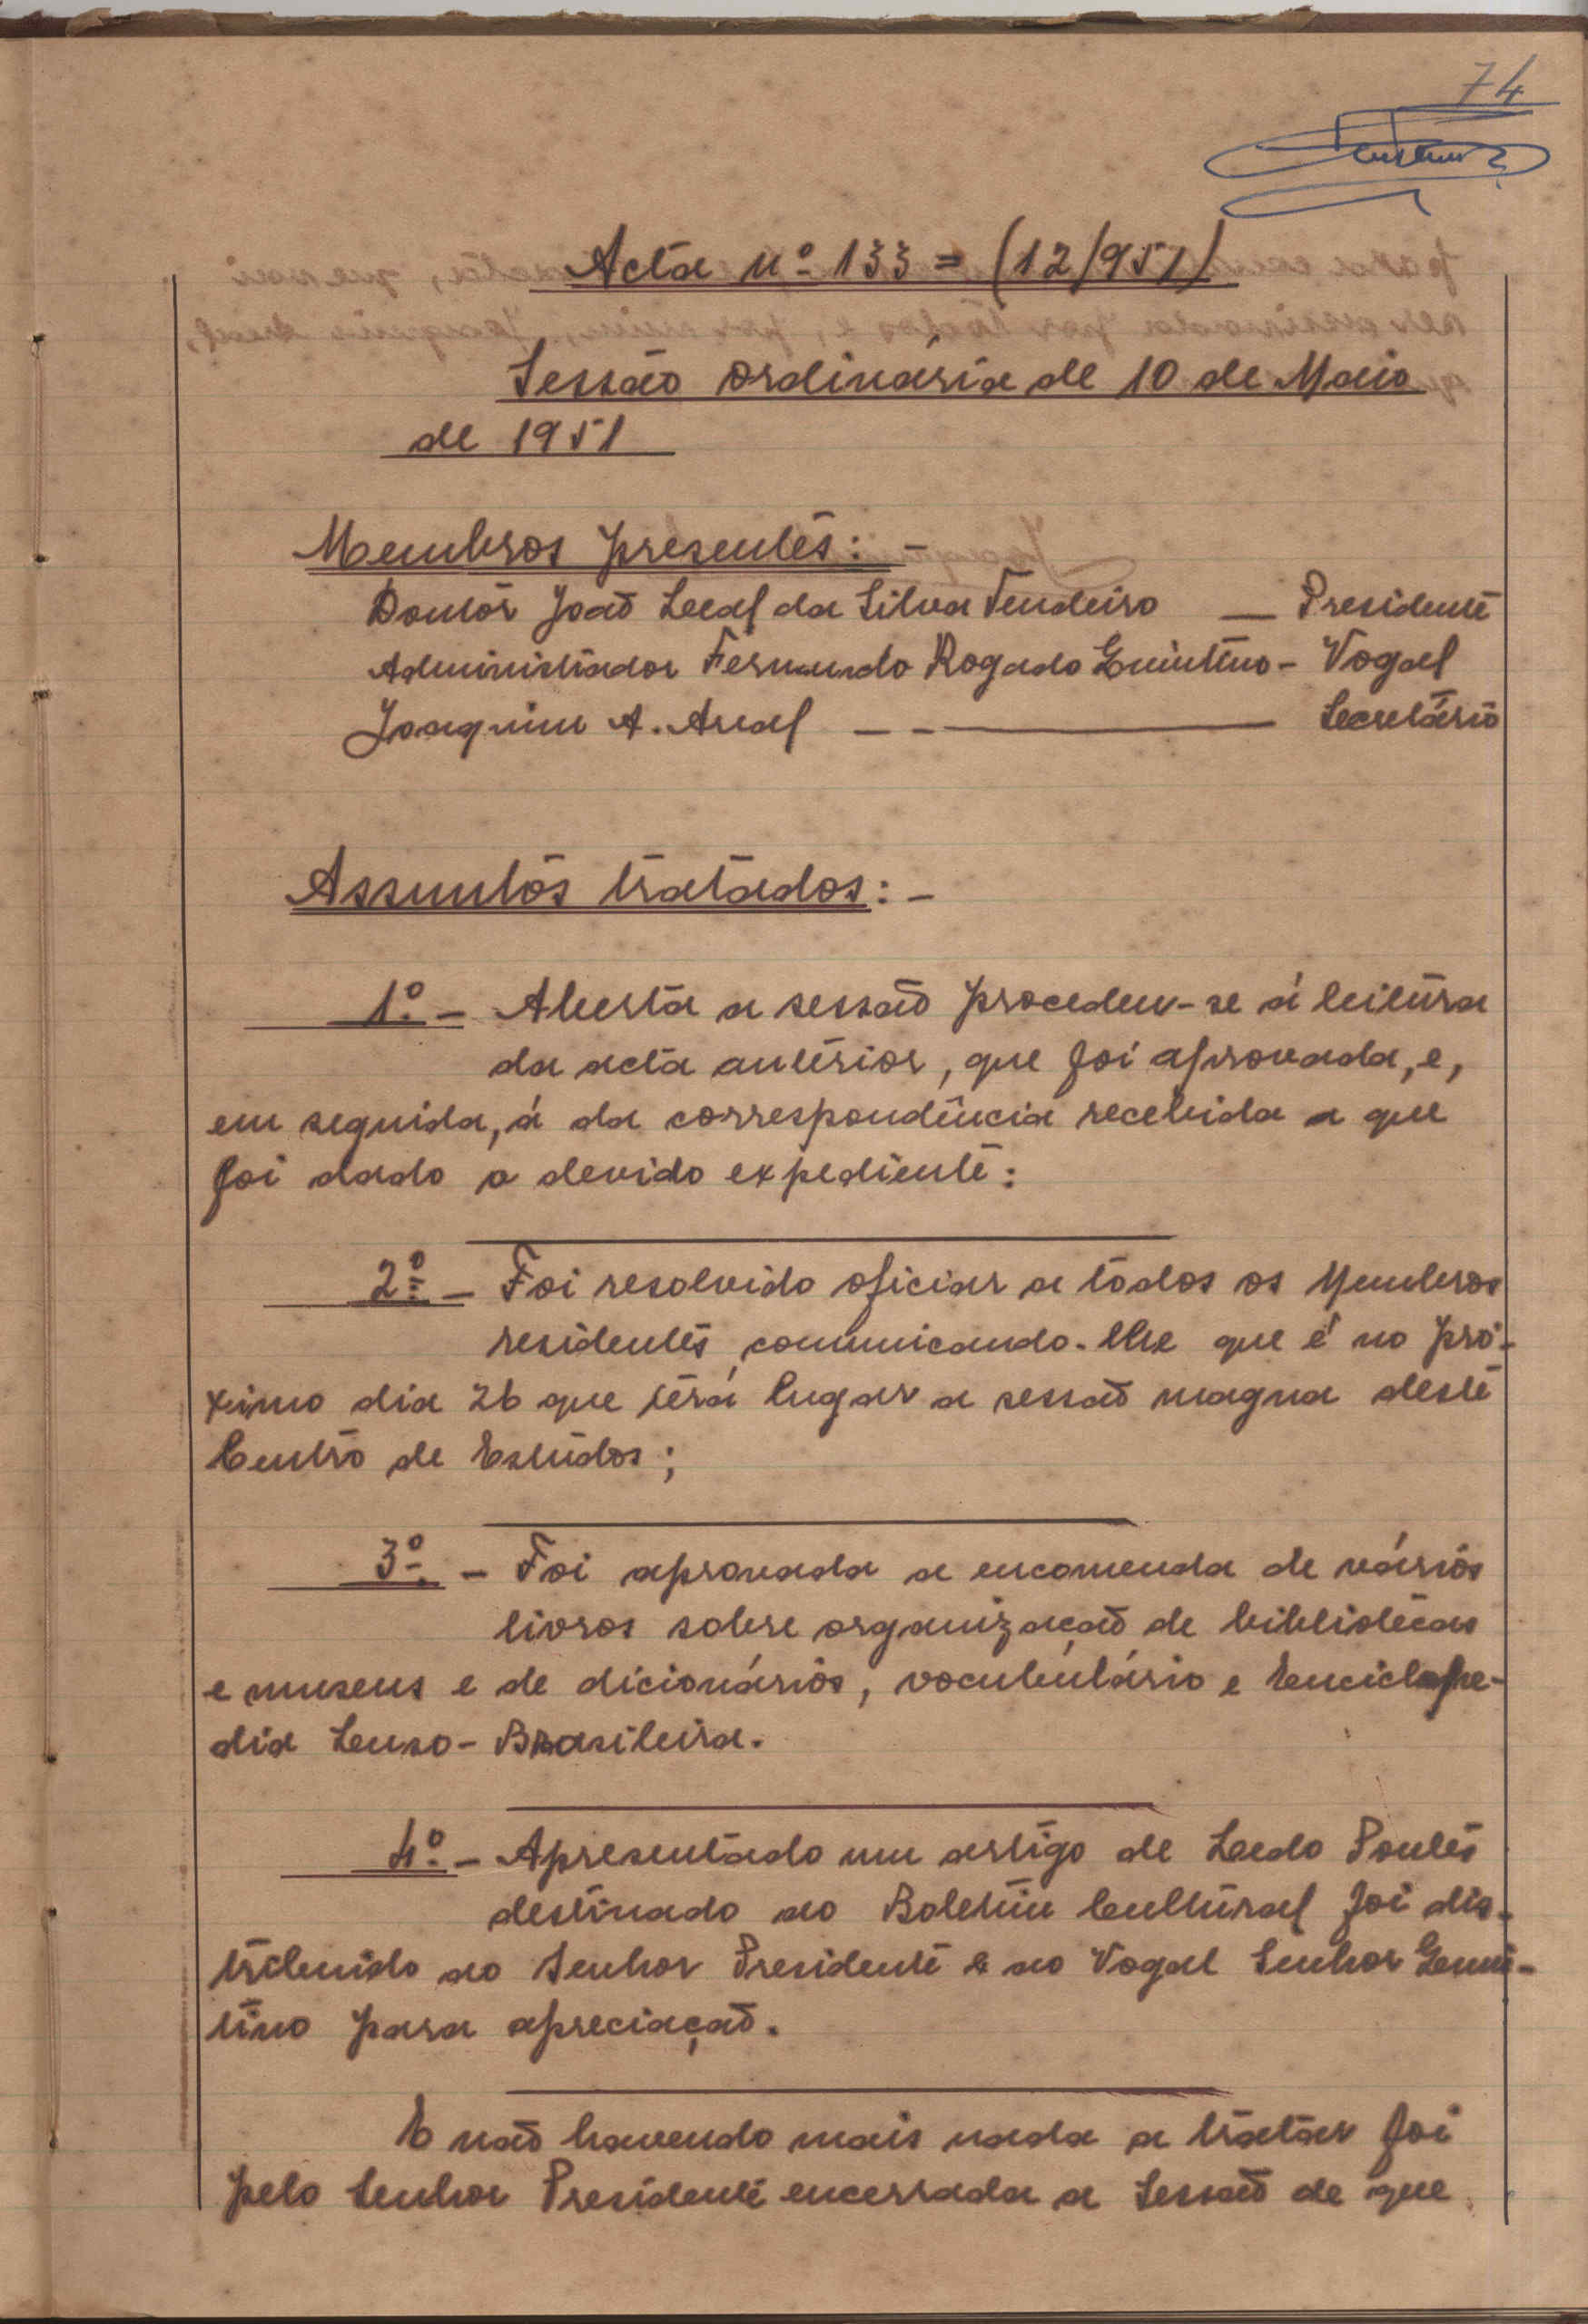 74
Acta nº 133 = (12/951)
Sessão ordinária de 10 de Maio
de 1951
Membros presentes: -
Doutor João Leal da Silva Tendeiro — Presidente
Administrador Fernando Rogado Quintino - Vogal
Joaquim A. Areal — - ——— Secretário
Assuntos tratados: -
1º. - Aberta a sessão procedeu-se á leitura
da acta anterior, que foi aprovada, e,
em seguida, á da correspondência recebida a que
foi dado o devido expediente:
2º - Foi resolvido oficiar a todos os Membros
residentes, comunicando-lhe que é no pró-
ximo dia 26 que terá lugar a sessão magna deste
Centro de Estudos;
3º. - Foi aprovada a encomenda de vários
livros sobre organização de bibliotecas
e museus e de dicionários, vocubulário e Enciclope-
dia Luso-Brasileira.
4º. - Apresentado um artigo de Ledo Pontes
destinado ao Boletim Cultural foi dis-
tribuido ao Senhor Presidente e ao Vogal Senhor Quin-
tino para apreciação.
E não havendo mais nada a tratar foi
pelo Senhor Presidente encerrada a Sessão de que